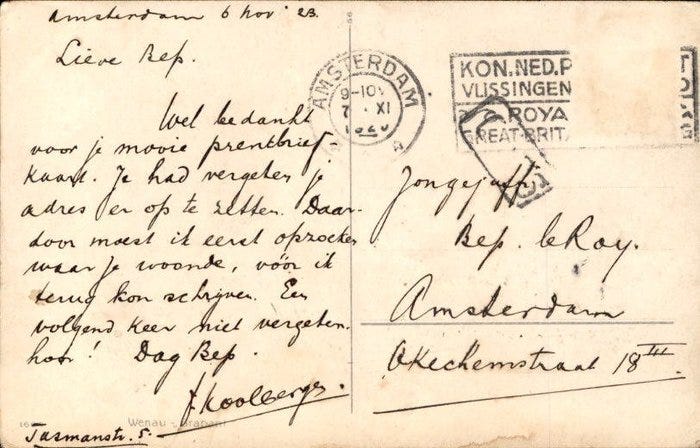 Amsterdam 6 Nov '23.
Lieve Bep.
Wel bedankt
voor je mooie prentbrief
kaart. Je had vergeten je
adres er op te zetten. Daar-
door moest ik eerst opzoeken
waar je woonde, vóór ik
terug kon schrijven. Een
volgend keer niet vergeten
hoor! Dag Bep.
J. Koolbergen.
Tasmanstr. 5.
Wenau - Brabant
AMSTERDAM
9-10
XI
KON.NED.P
VLISSINGEN
ROYA
GREAT-BRIT
Jongejuffr
Bep. le Roy.
Amsterdam
Okeghemstraat 18 III